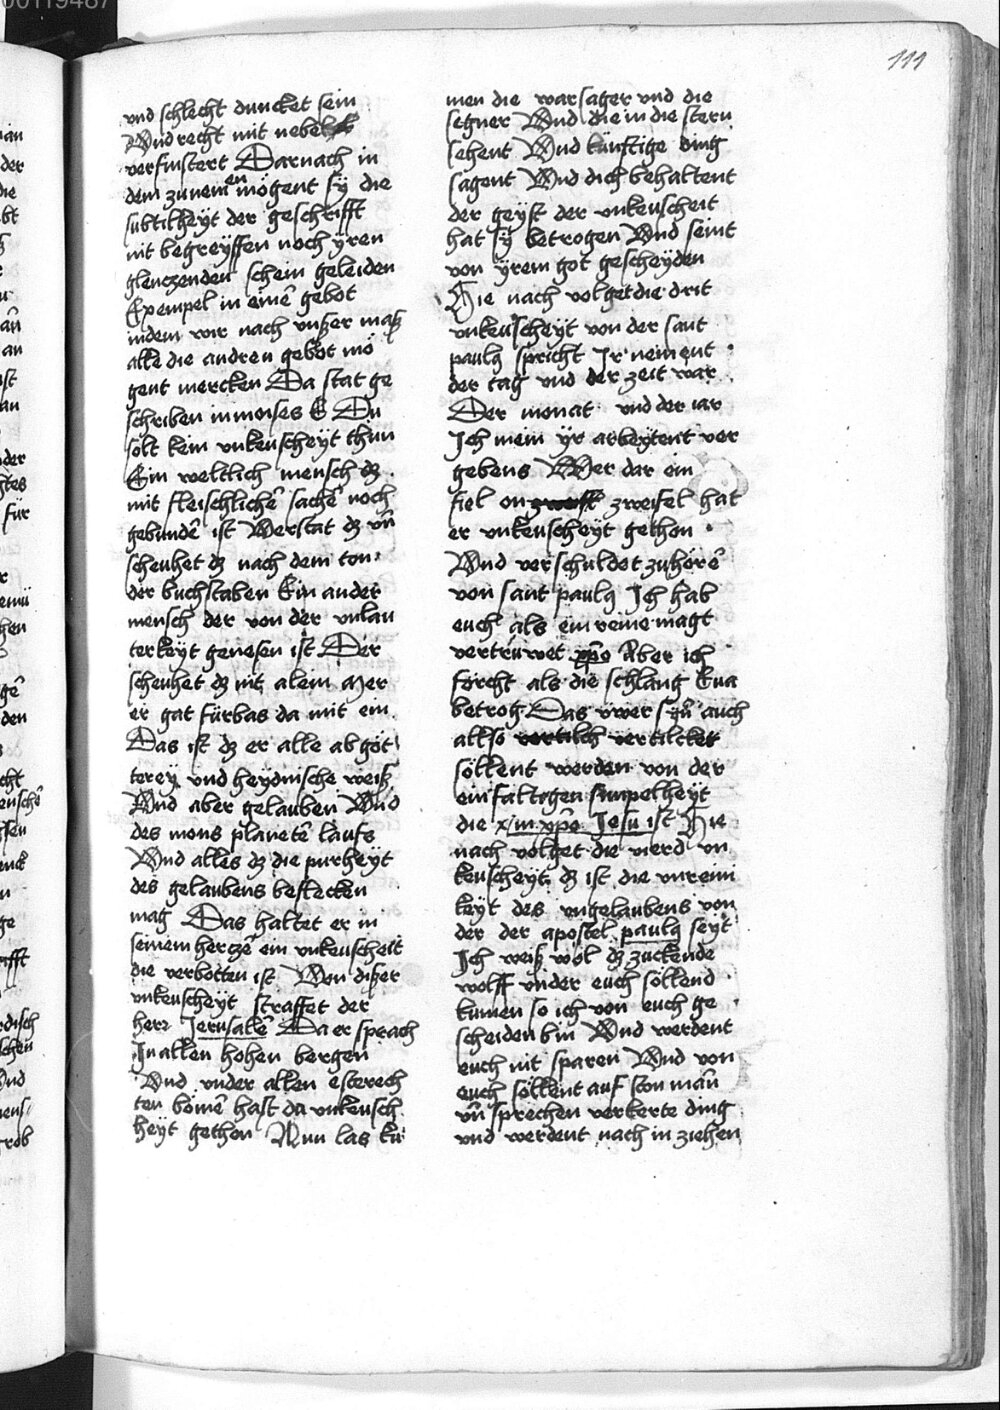 111
vnd schlecht duncket sein
Vnd recht mit nebel
verfinstert Darnach in
dem zunemen mögent sÿ die
subtilheÿt der geschrifft
nit begreÿffen noch ÿren
glenczenden schein geleiden
Exempel in einē gebot
indem wir nach vnßer maß
alle die andren gebot mö
gent mercken Da stat ge
schriben in moises E Du
solt kein vnkeuscheÿt thun
Ein weltlich mensch dz
mit fleischlichē sachē noch
gebundē ist Verstat dz vn̄
scheuhet dz nach dem ton
der buchstaben Ein ander
mensch der von der vnlau
terkeÿt genesen ist Der
scheuhet dz nit alein Mer
er gat fürbas da mit ein
Das ist dz er alle abgöt
tereÿ vnd heÿdnische weiß
Vnd aber gelauben Vnd
des mons planetē laufs
Vnd alles dz die purheÿt
des gelaubens beflecken
mag Das haltet er in
seinem herczē ein vnkeuscheit
die verbotten ist Von dißer
vnkeuscheyt straffet der
herr Jerusalē Da er sprach
In allen hohen bergen
Vnd vnder allen esterech
ten bömē hast du vnkeusch
heÿt gethon Nun las ku
men die warsager vnd die
segner Vnd die in die stern
sehent Vnd künftige ding
sagent Vnd dich behaltent
der geÿst der vnkeuscheit
hat sÿ betrogen Vnd seint
von ÿrem got gescheÿden
Hie nach volget die drit
vnkeuscheÿt von der sant
paulꝰ spricht Ir nement
der tag vnd der zeit war
Der monat vnd der iar
Ich mein ÿr arbeÿtent ver
gebens Wer dar ein
fiel on zweifel hat
er vnkeuscheÿt gethon
Vnd verschuldet zuhörē
von sant paulꝰ Ich hab
euch als ein reine magt
vertruwet xp̄o Aber ich
förcht als die schlang Eua
betrog Das üwer sÿn̄ auch
allso vertilcket
söllent werden von der
einfaltigen simpelheÿt
die in xp̄o Jesu ist Hie
nach volget die vierd vn
keuscheÿt dz ist die vnrein
keÿt des vngelaubens von
der der apostel paulꝰ seÿt
Ich weiß wol dz zuckende
wolff vnder euch söllend
kumen so ich von euch ge
scheiden bin Vnd werdent
euch nit sparen Vnd von
euch söllent auf ston man̄
vn̄ sprechen verkerte ding
vnd werdent nach in ziehen